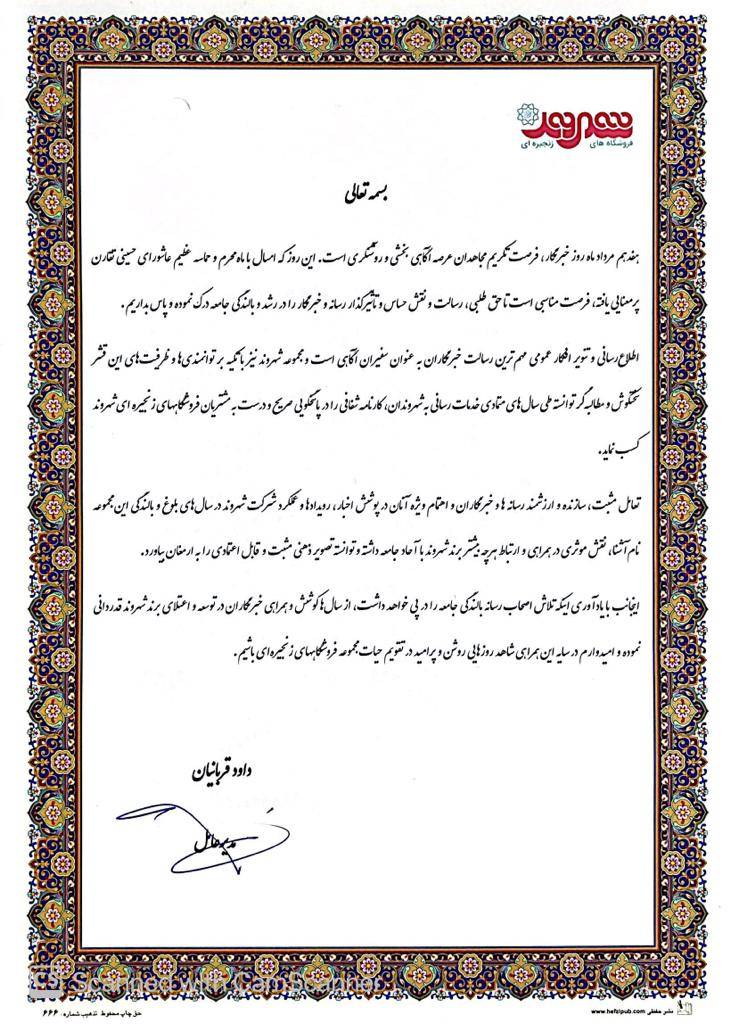 شهروند
فروشگاه های زنجیره ای
بسمه تعالی
هفدهم مرداد ماه روز خبرنگار، فرصت تکریم مجاهدان عرصه آگاهی بخشی و روشنگری است. این روز که امسال با ماه محرم و حماسه عظیم عاشورای حسینی تقارن
پرمعنایی یافته، فرصت مناسبی است تا حق طلبی، رسالت و نقش حساس و تأثیرگذار رسانه و خبرنگار را در رشد و بالندگی جامعه درک نموده و پاس بداریم.
اطلاع رسانی و تنویر افکار عمومی مهم ترین رسالت خبرنگاران به عنوان سفیران آگاهی است و مجموعه شهروند نیز با تکیه بر توانمندی ها و ظرفیت های این قشر
سختکوش و مطالبه گر توانسته طی سال های متمادی خدمات رسانی به شهروندان، کارنامه شفافی را در پاسخگویی صریح و درست به مشتریان فروشگاههای زنجیره ای شهروند
کسب نماید.
تعامل مثبت، سازنده و ارزشمند رسانه ها و خبرنگاران و اهتمام ویژه آنان در پوشش اخبار، رویدادها و عملکرد شرکت شهروند در سال های بلوغ و بالندگی این مجموعه
نام آشنا، نقش موثری در همراهی و ارتباط هرچه بیشتر برند شهروند با آحاد جامعه داشته و توانسته تصویر ذهنی مثبت و قابل اعتمادی را به ارمغان بیاورد.
اینجانب با یادآوری اینکه تلاش اصحاب رسانه بالندگی جامعه را در پی خواهد داشت، از سال ها کوشش و همراهی خبرنگاران در توسعه و اعتلای برند شهروند قدردانی
نموده و امیدوارم در سایه این همراهی شاهد روزهایی روشن و پرامید در تقویم حیات مجموعه فروشگاههای زنجیره ای باشیم.
داود قربانیان
مدیرعامل
CS Scanned with CamScanner
حق چاپ محفوظ تذهیب شماره ۶۶۶
www.hefzipub.com نشر حفظی